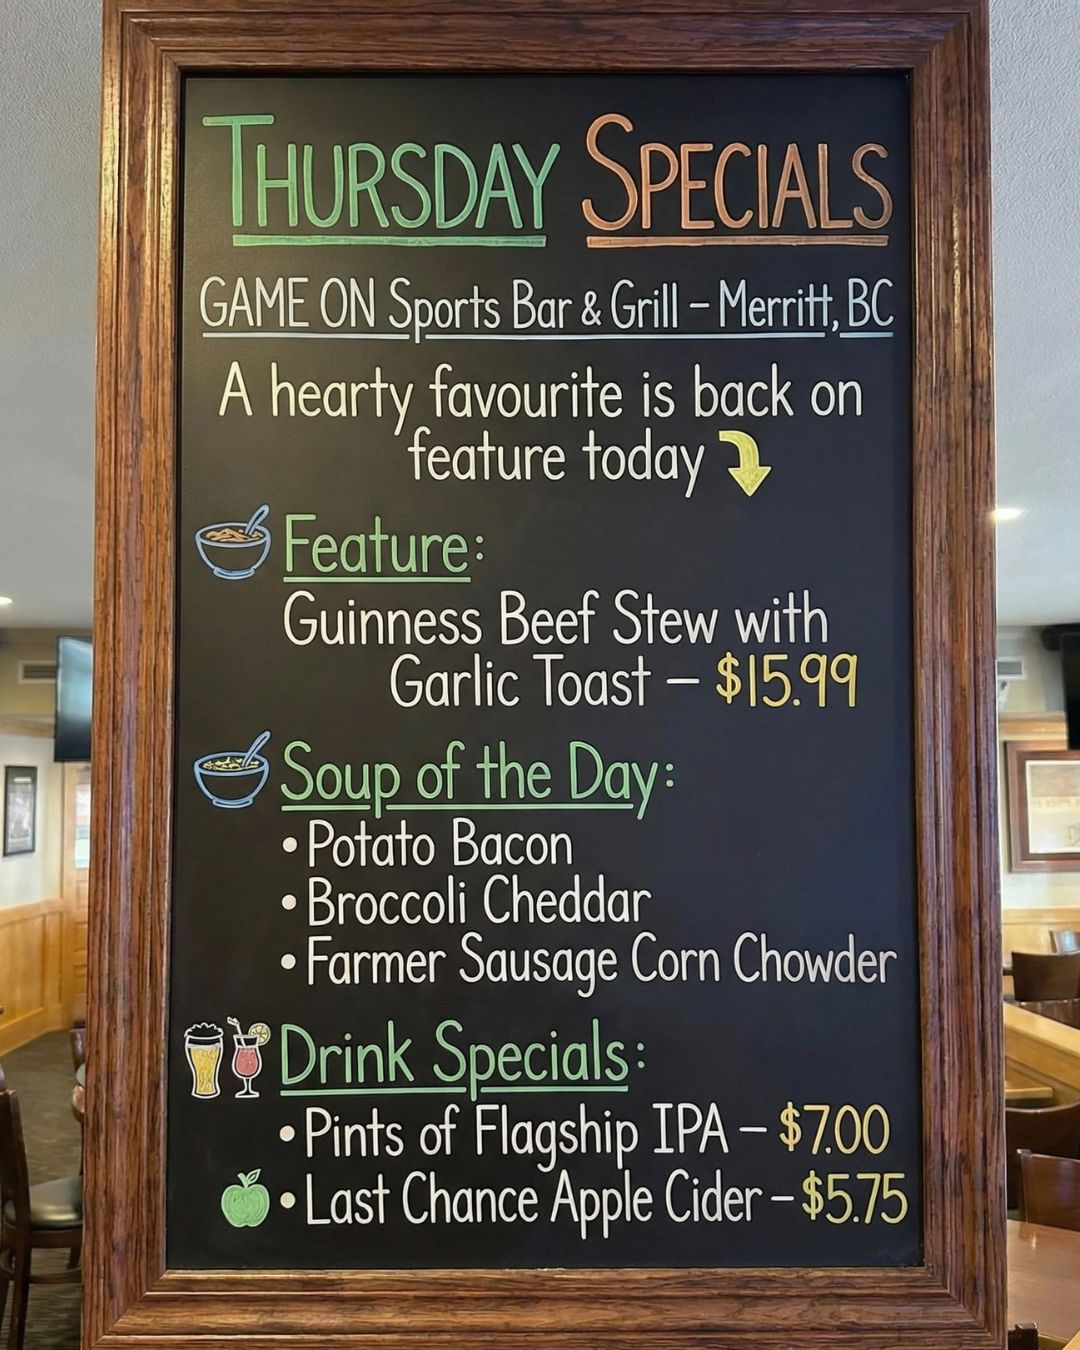 THURSDAY SPECIALS
GAME ON Sports Bar & Grill – Merritt, BC
A hearty favourite is back on
feature today
Feature:
Guinness Beef Stew with
Garlic Toast – $15.99
Soup of the Day:
• Potato Bacon
• Broccoli Cheddar
• Farmer Sausage Corn Chowder
Drink Specials:
• Pints of Flagship IPA – $7.00
• Last Chance Apple Cider – $5.75